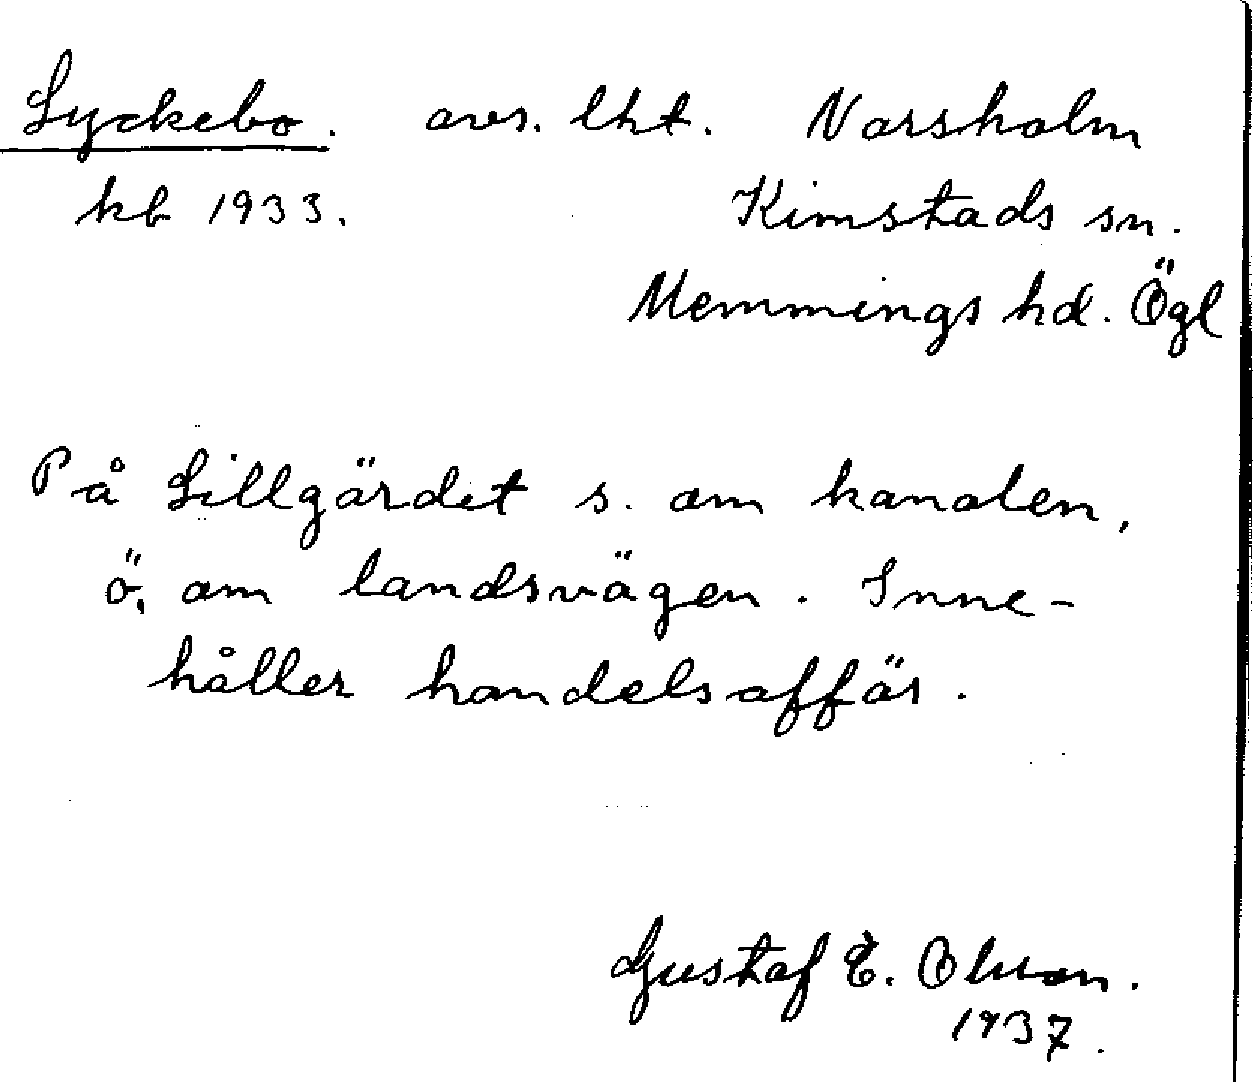 Lyckebo. avs. lht. Norsholm
kb 1933. Kimstads sn.
Memmings hd. Ögl
På Lillgärdet s. om kanalen,
ö. om landsvägen. Inne-
håller handelsaffär.
Gustaf E. Olsson.
1937.